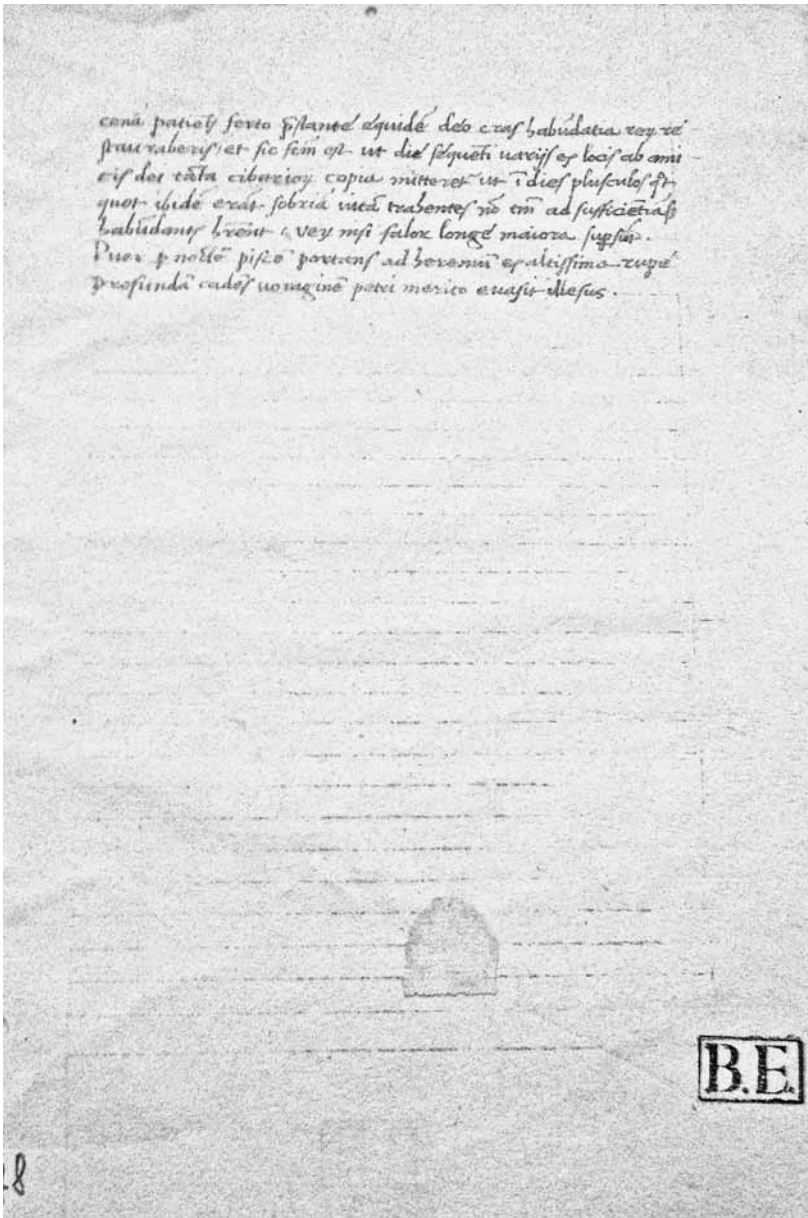 cenā patieꝭ ferto p̄stante equidē deo cras habūdātia reꝝ re
stauraberis, et sic fcm̄ est ut die sequēti varijs es locis ab ami
cis dei tāta cibarioꝝ copia mitteret ut ī dies plusculos
quot ibidē erāt sobriā vitā trahentes nō tm̄ ad sufficiētiā
habūdantꝭ hrēnt veꝝ nisi falor longe maiora
Puer p noctē piscē portans ad heremū es altissima rupe
profundā cadēs voraginē petri merito evasit illesus.
B.E.
28